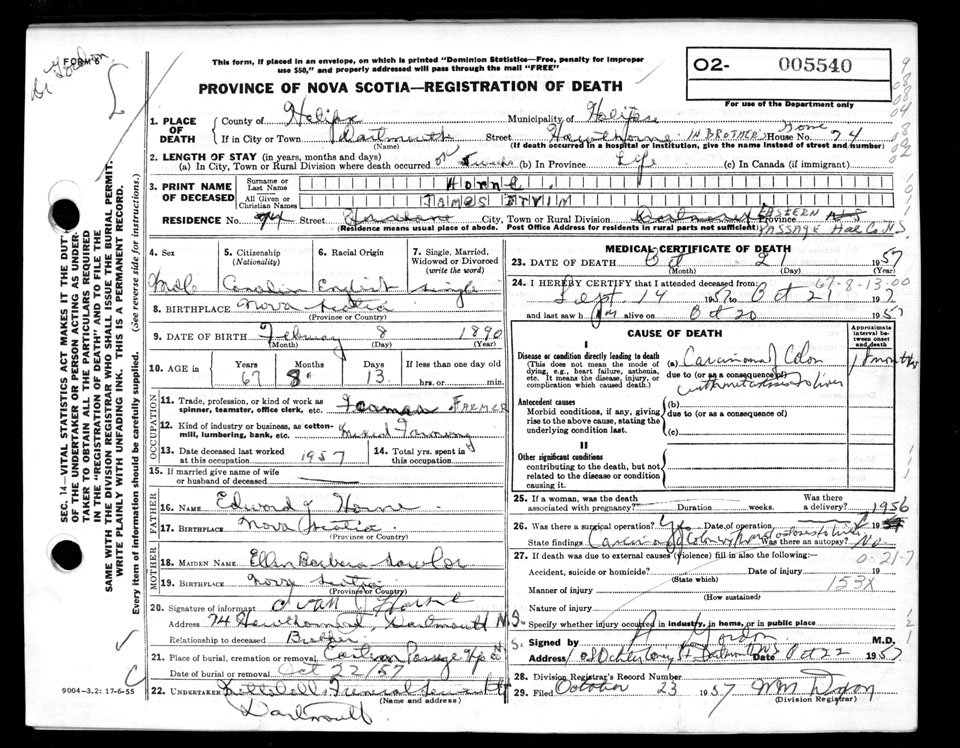 FORM 6
Dr Gordon
This form, if placed in an envelope, on which is printed "Dominion Statistics—Free, penalty for improper
use $50," and properly addressed will pass through the mail "FREE"
PROVINCE OF NOVA SCOTIA—REGISTRATION OF DEATH
O2- 005540
For use of the Department only
1. PLACE OF DEATH
County of Halifax Municipality of Halifax
If in City or Town Dartmouth Street Hawthorne IN BROTHER'S Home House No. 74
(Name) (If death occurred in a hospital or institution, give the name instead of street and number)
2. LENGTH OF STAY (in years, months and days)
(a) In City, Town or Rural Division where death occurred (b) In Province Life (c) In Canada (if immigrant)
3. PRINT NAME OF DECEASED
Surname or Last Name Horne
All Given or Christian Names JAMES ERVIM
RESIDENCE No. 74 Street City, Town or Rural Division EASTERN PASSAGE Province Hal Co N.S.
(Residence means usual place of abode. Post Office Address for residents in rural parts not sufficient)
4. Sex Male
5. Citizenship (Nationality) Canadian
6. Racial Origin English
7. Single, Married, Widowed or Divorced (write the word) single
8. BIRTHPLACE Nova Scotia
(Province or Country)
9. DATE OF BIRTH February 8 1890
(Month) (Day) (Year)
10. AGE in Years 67 Months 8 Days 13 If less than one day old hrs. or min.
OCCUPATION
11. Trade, profession, or kind of work as spinner, teamster, office clerk, etc. FARMER
12. Kind of industry or business, as cotton-mill, lumbering, bank, etc. Mixed Farming
13. Date deceased last worked at this occupation 1957
14. Total yrs. spent in this occupation
15. If married give name of wife or husband of deceased
FATHER
16. NAME Edward J Horne
17. BIRTHPLACE Nova Scotia
(Province or Country)
MOTHER
18. MAIDEN NAME Ellen Barbara
19. BIRTHPLACE Nova Scotia
(Province or Country)
20. Signature of informant Horne
Address 74 Hawthorne St, Dartmouth N.S.
Relationship to deceased Brother
21. Place of burial, cremation or removal Eastern Passage
Date of burial or removal Oct 22/57
22. UNDERTAKER Funeral
Dartmouth
(Name and address)
MEDICAL CERTIFICATE OF DEATH
23. DATE OF DEATH Oct 21 1957
(Month) (Day) (Year)
24. I HEREBY CERTIFY that I attended deceased from: 67-8-13-00
Sept 14 1957 to Oct 21 1957
and last saw him alive on Oct 20 1957
CAUSE OF DEATH
Approximate interval between onset and death
I
Disease or condition directly leading to death
(This does not mean the mode of dying, e.g., heart failure, asthenia, etc. It means the disease, injury, or complication which caused death.)
(a) Carcinoma of Colon
due to (or as a consequence of)
with metastasis to liver
18 months
Antecedent causes
Morbid conditions, if any, giving rise to the above cause, stating the underlying condition last.
(b)
due to (or as a consequence of)
(c)
II
Other significant conditions
contributing to the death, but not related to the disease or condition causing it.
25. If a woman, was the death associated with pregnancy? Duration weeks. Was there a delivery?
26. Was there a surgical operation? Yes Date of operation 1956
State findings Carcinoma of Colon Was there an autopsy? No
27. If death was due to external causes (violence) fill in also the following:—
Accident, suicide or homicide? Date of injury 19
(State which)
Manner of injury 153X
(How sustained)
Nature of injury
Specify whether injury occurred in industry, in home, or in public place
Signed by Gordon M.D.
Address Dartmouth Date Oct 22 1957
28. Division Registrar's Record Number
29. Filed October 23 1957
(Division Registrar)
SEC. 14—VITAL STATISTICS ACT MAKES IT THE DUTY
OF THE UNDERTAKER OR PERSON ACTING AS UNDER-
TAKER TO OBTAIN ALL THE PARTICULARS REQUIRED
IN THE "REGISTRATION OF DEATH" AND TO FILE THE
SAME WITH THE DIVISION REGISTRAR WHO SHALL ISSUE THE BURIAL PERMIT.
WRITE PLAINLY WITH UNFADING INK. THIS IS A PERMANENT RECORD.
Every item of information should be carefully supplied. (See reverse side for instructions.)
9004-3.2: 17-6-55